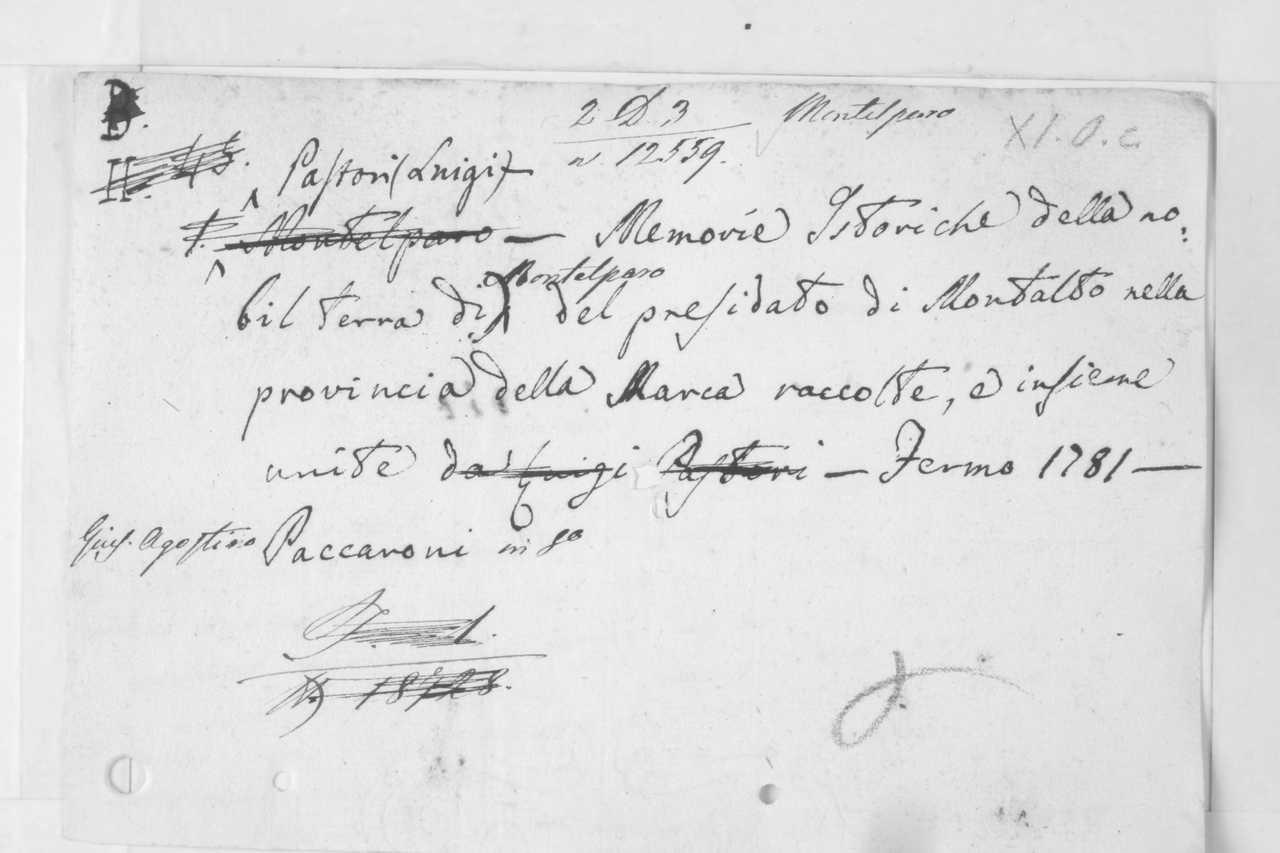 D.
2. D. 3 Montelparo
n. 12559. XI. O. c.
II. 45. Pastori (Luigi)
Montelparo — Memorie Istoriche della no:
Montelparo
bil terra di del presidato di Montalto nella
provincia della Marca raccolte, e insieme
unite da Luigi Pastori — Fermo 1781 —
Gius. Agostino Paccaroni in 8o
18728.